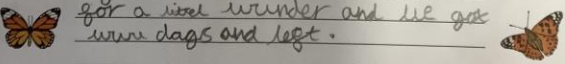 for a litel wunder and we got
wwu dags and left.